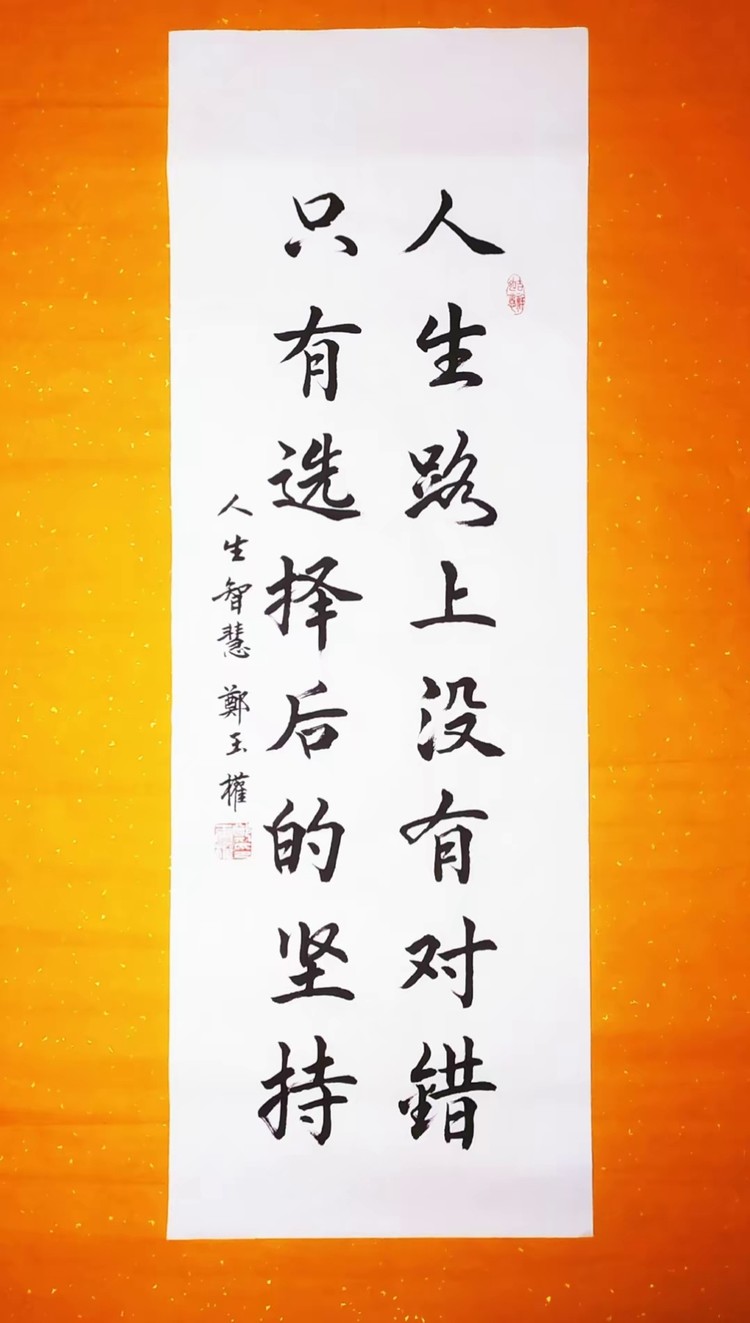 人生路上没有对錯
只有选择后的坚持
人生智慧 鄭玉權